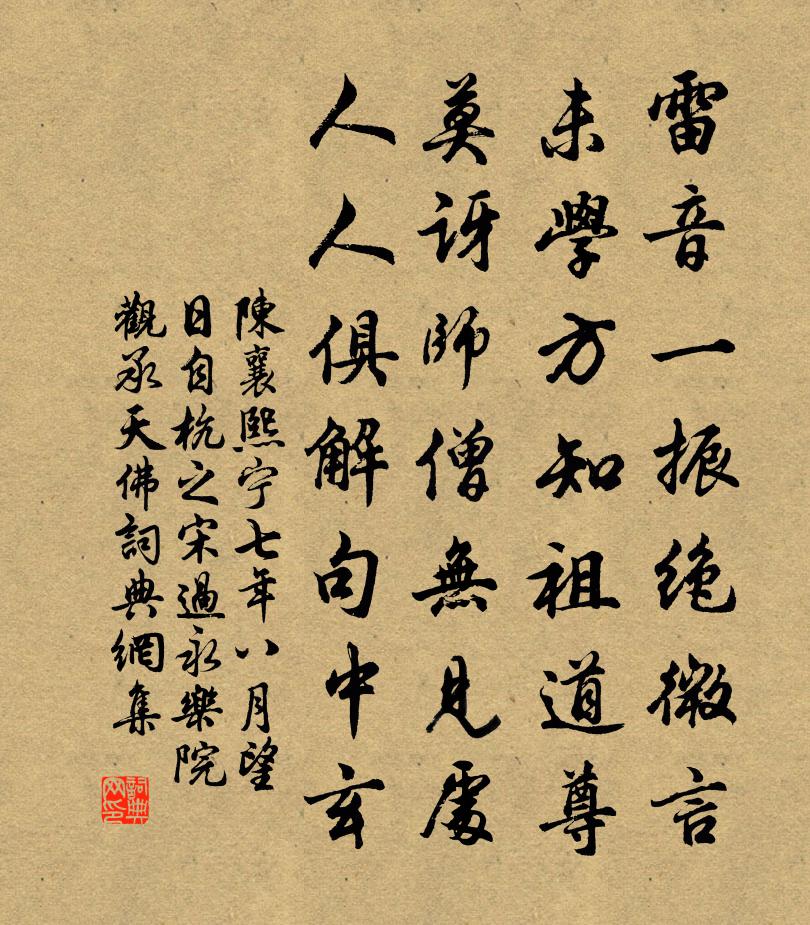 雷音一振絶微言
未學方知祖道尊
莫訝師僧無見處
人人俱解句中玄
陳襄熙宁七年八月望
日自杭之宋過永樂院
觀承天佛詞典網集
詞典網印